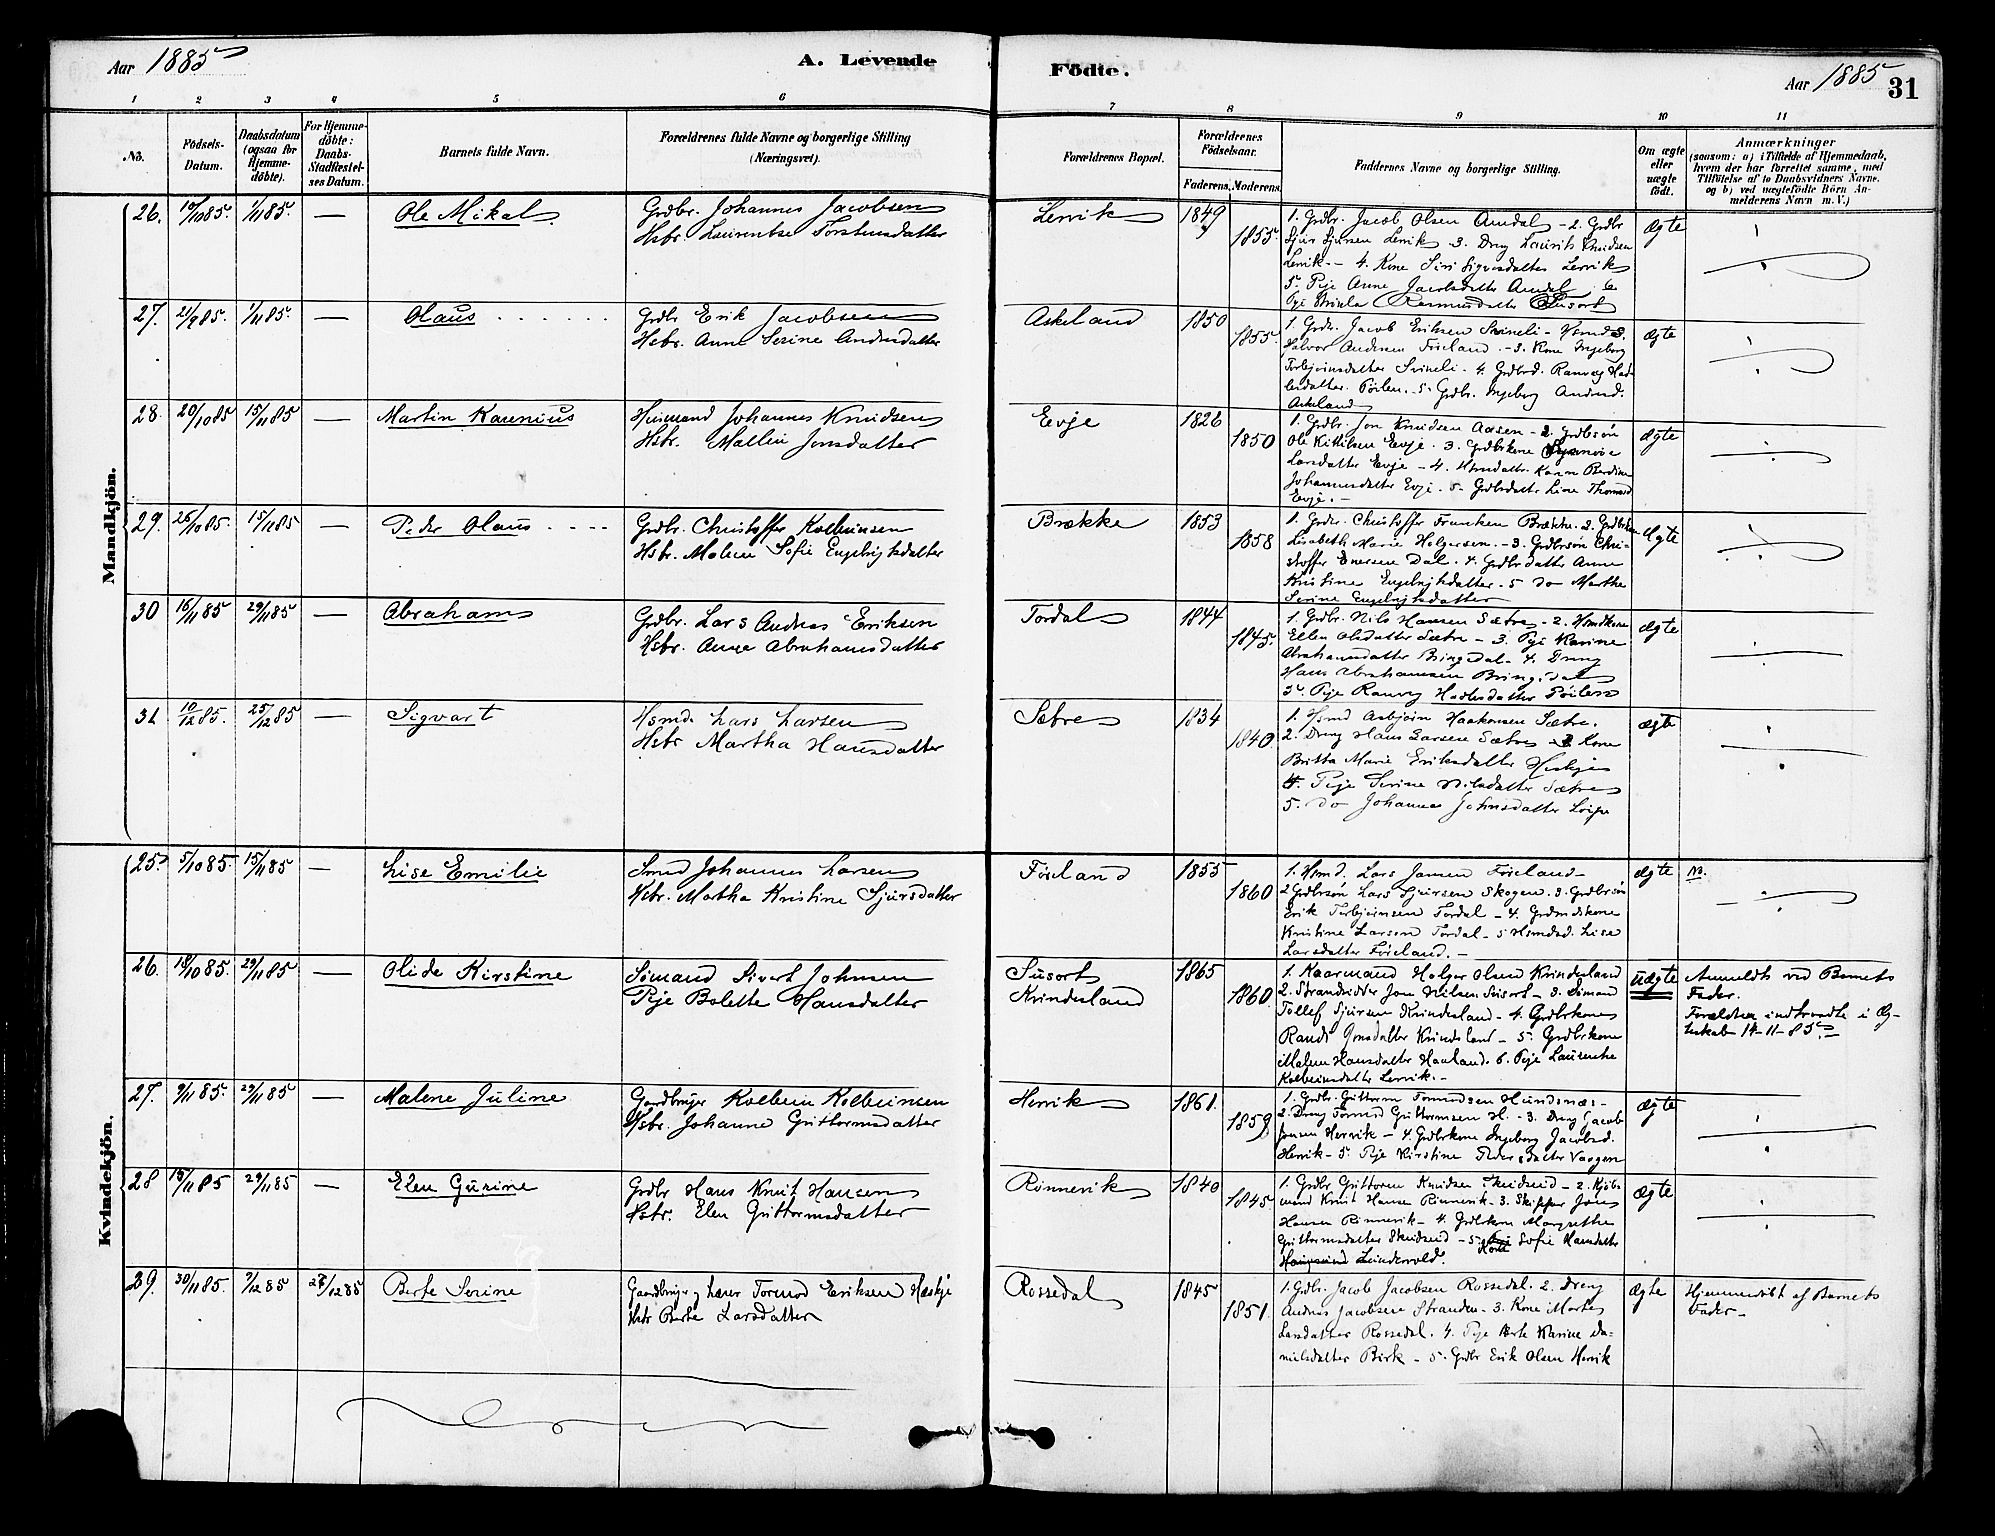 Aar 1885
A. Levende
Födte.
Aar 1885
31
1 2 3 4 5 6 7 8 9 10 11
No.
Födsels-
Datum.
Daabsdatum
(ogsaa for
Hjemme-
döbte).
For Hjemme-
döbte:
Daabs-
Stadfæstel-
ses Datum.
Barnets fulde Navn.
Forældrenes fulde Navne og borgerlige Stilling
(Næringsvei).
Forældrenes Bopæl.
Forældrenes
Födselsaar.
Faderens. Moderens.
Faddernes Navne og borgerlige Stilling.
Om ægte
eller
uægte
födt.
Anmærkninger
(saasom: a) i Tilfælde af Hjemmedaab,
hvem der har forrettet samme, med
Tilföielse af to Daabsvidners Navne.
og b) ved uægtefödte Börn An-
melderens Navn m. V.)
Mandkjön.
26. 10/10 85. 1/11 85. — Ole Mikal
Grdbr. Johannes Jacobsen
Hsbr. Laurentse Torstensdatter
Lervik 1849 1855.
1. Grdbr. Jacob Olsen Amdal - 2. Grdbr
Sjur Sjursen Lervik - 3. Dreng Laurits Knudsen
Lervik - 4. Kone Siri Sigvasdatter Lervik
5. Pije Anne Jacobsdatter Amdal 6
Rasmusdatter Susort
Ægte
27. 21/9 85. 1/11 85. — Olaus
Grdbr Erik Jacobsen
Hsbr. Anne Serine Andersdatter
Askeland 1850 1855.
1. Grdbr. Jacob Eriksen Svineli - Hsmd 2.
Halvor Andersen Föreland. - 3. Kone Ingeborg
Torbjörnsdatter Svineli. 4. Ranveg
5. Grdbr. Ingeborg
Askeland
Ægte
28. 20/10 85 15/11 85 — Martin Kornius
Huusmand Johannes Knudsen
Hsbr. Mallin Jonsdatter
Evje 1826 1850
1. Grdbr. Jon Knudsen Aasen - 2. Grdbrsön
Ole Kittilsen Evje. 3. Grdbrkone
Larsdatter Evje - 4. Hsmdatter Karen Berdine
Johannesdatter Evje. 5. Grdbrdatter Line
Evje. -
Ægte
29. 26/10 85. 15/11 85 — Peder Olaus
Grdbr. Christoffer Kolbeinsen
Hsbr. Malene Sofie Engelrigtsdatter
Brække 1853 1858
1. Grdbr. Christoffer Brække. 2. Grdbrkone
Lisabeth Marie Holgersen. - 3. Grdbrsön Chri-
stoffer Enersen Dal. 4. Grdbrdatter Anne
Kristine Engelrigtsdatter. 5 do Marthe
Serine Engelrigtsdatter
Ægte
30 16/11 85 29/11 85 — Abraham
Grdbr. Lars Andreas Eriksen
Hsbr. Anne Abrahamsdatter
Tordal 1844 1845.
1. Grdbr. Nils Hansen Sætre - 2. Hsmdkone
Ellen Olsdatter Sætre - 3. Pije Karine
Abrahamsdatter Bringedal - 4. Dreng
Hans Abrahamsen Bringedal
5. Pije Ranveg
Ægte
31 10/12 85. 25/12 85 — Sigvart
Hsmd. Lars Larsen
Hsbr Martha Hansdatter
Sætre 1834 1840.
1. Hsmd Asbjörn Haakonsen Sætre.
2. Dreng Hans Larsen Sætre - 3 Kone
Britta Marie Eriksdatter Heskje
4. Pije Serine Nilsdatter Sætre
5. do Johanne Johnsdatter
Ægte
Kvindekjön.
25. 5/10 85. 15/11 85 — Lise Emilie
Smed Johannes Larsen
Hsbr. Martha Kristine Sjursdatter
Föreland 1855 1860
1. Hsmd. Lars Jansen Föreland -
2 Grdbrsön Lars Sjursen Skogen. 3. Grdbrsön
Erik Torbjörnsen Tordal - 4. Grdmdskone
Kristine Larsen Tordal - 5 Hsmdsd. Lise
Larsdatter Föreland. -
Ægte
26. 18/10 85. 29/11 85 — Olide Kirstine
Sömand Sivert Johnsen
Pije Bolette Hansdatter
Susort
Kvindesland
1865 1860.
1. Kaarmand Holger Olsen Kvindesland
2. Strandsidder Jon Nilsen Susort - 3. Sömand
Tollef Sjursen Kvindesland - 4. Grdbrkone
Randi Jonsdatter Kvindesland - 5. Grdbrkone
Malene Hansdatter Haaland. 6. Pije Laurentse
Kolbeinsdatter Lervik. -
Uægte
Anmeldt ved Barnets
Fader.
Forældrene indtraadte i Æg-
teskab 14-11-85.
27. 9/11 85. 29/11 85 — Malene Juline
Gaardbruger Kolbein Kolbeinsen
Hsbr. Johanne Guttormsdatter
Hervik 1861. 1859
1. Grdbr. Guttorm Tormodsen Hundsnæs -
2. Dreng Tormod Guttormsen H. - 3. Dreng Jacob
Jonsen Hervik - 4. Grdbrkone Ingeborg Jacobsd.
Hervik - 5. Pije Kirstine Pedersdatter Vaagen
Ægte
28 15/11 85 29/11 85 — Elen Gurine
Grdbr Hans Knut Hansen
Hsbr. Elen Guttormsdatter
Rinnervik 1840 1845
1. Grdbr Guttorm Knudsen - 2. Kjöb-
mand Knut Hansen Rinnervik - 3. Skipper Jon
Hansen Rinnervik - 4. Grdbrkone Margrethe
Guttormsdatter - 5. Kone Sofie Hansdatter
Ægte
29. 30/11 85. 7/12 85 27/12 85 Berte Serine
Gaardbruger og Lærer Tormod Eriksen Heskje
Hsbr Berte Larsdatter
Rossedal 1845 1851.
1. Grdbr. Jacob Jacobsen Rossedal. 2. Dreng
Andreas Jacobsen Stranden - 3. Kone Marte
Larsdatter Rossedal. 4. Pije Berte Karine Da-
nielsdatter Birk - 5. Grdbr Erik Olsen Hervik
Ægte
Hjemmedöbt af Barnets
Fader -